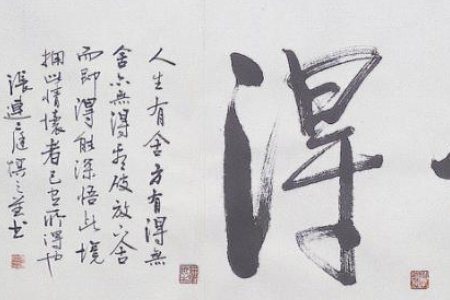 得
人生有舍方有得無
舍亦無得看破放下舍
而即得能深悟此境
擁此情懷者已所得也
張
書